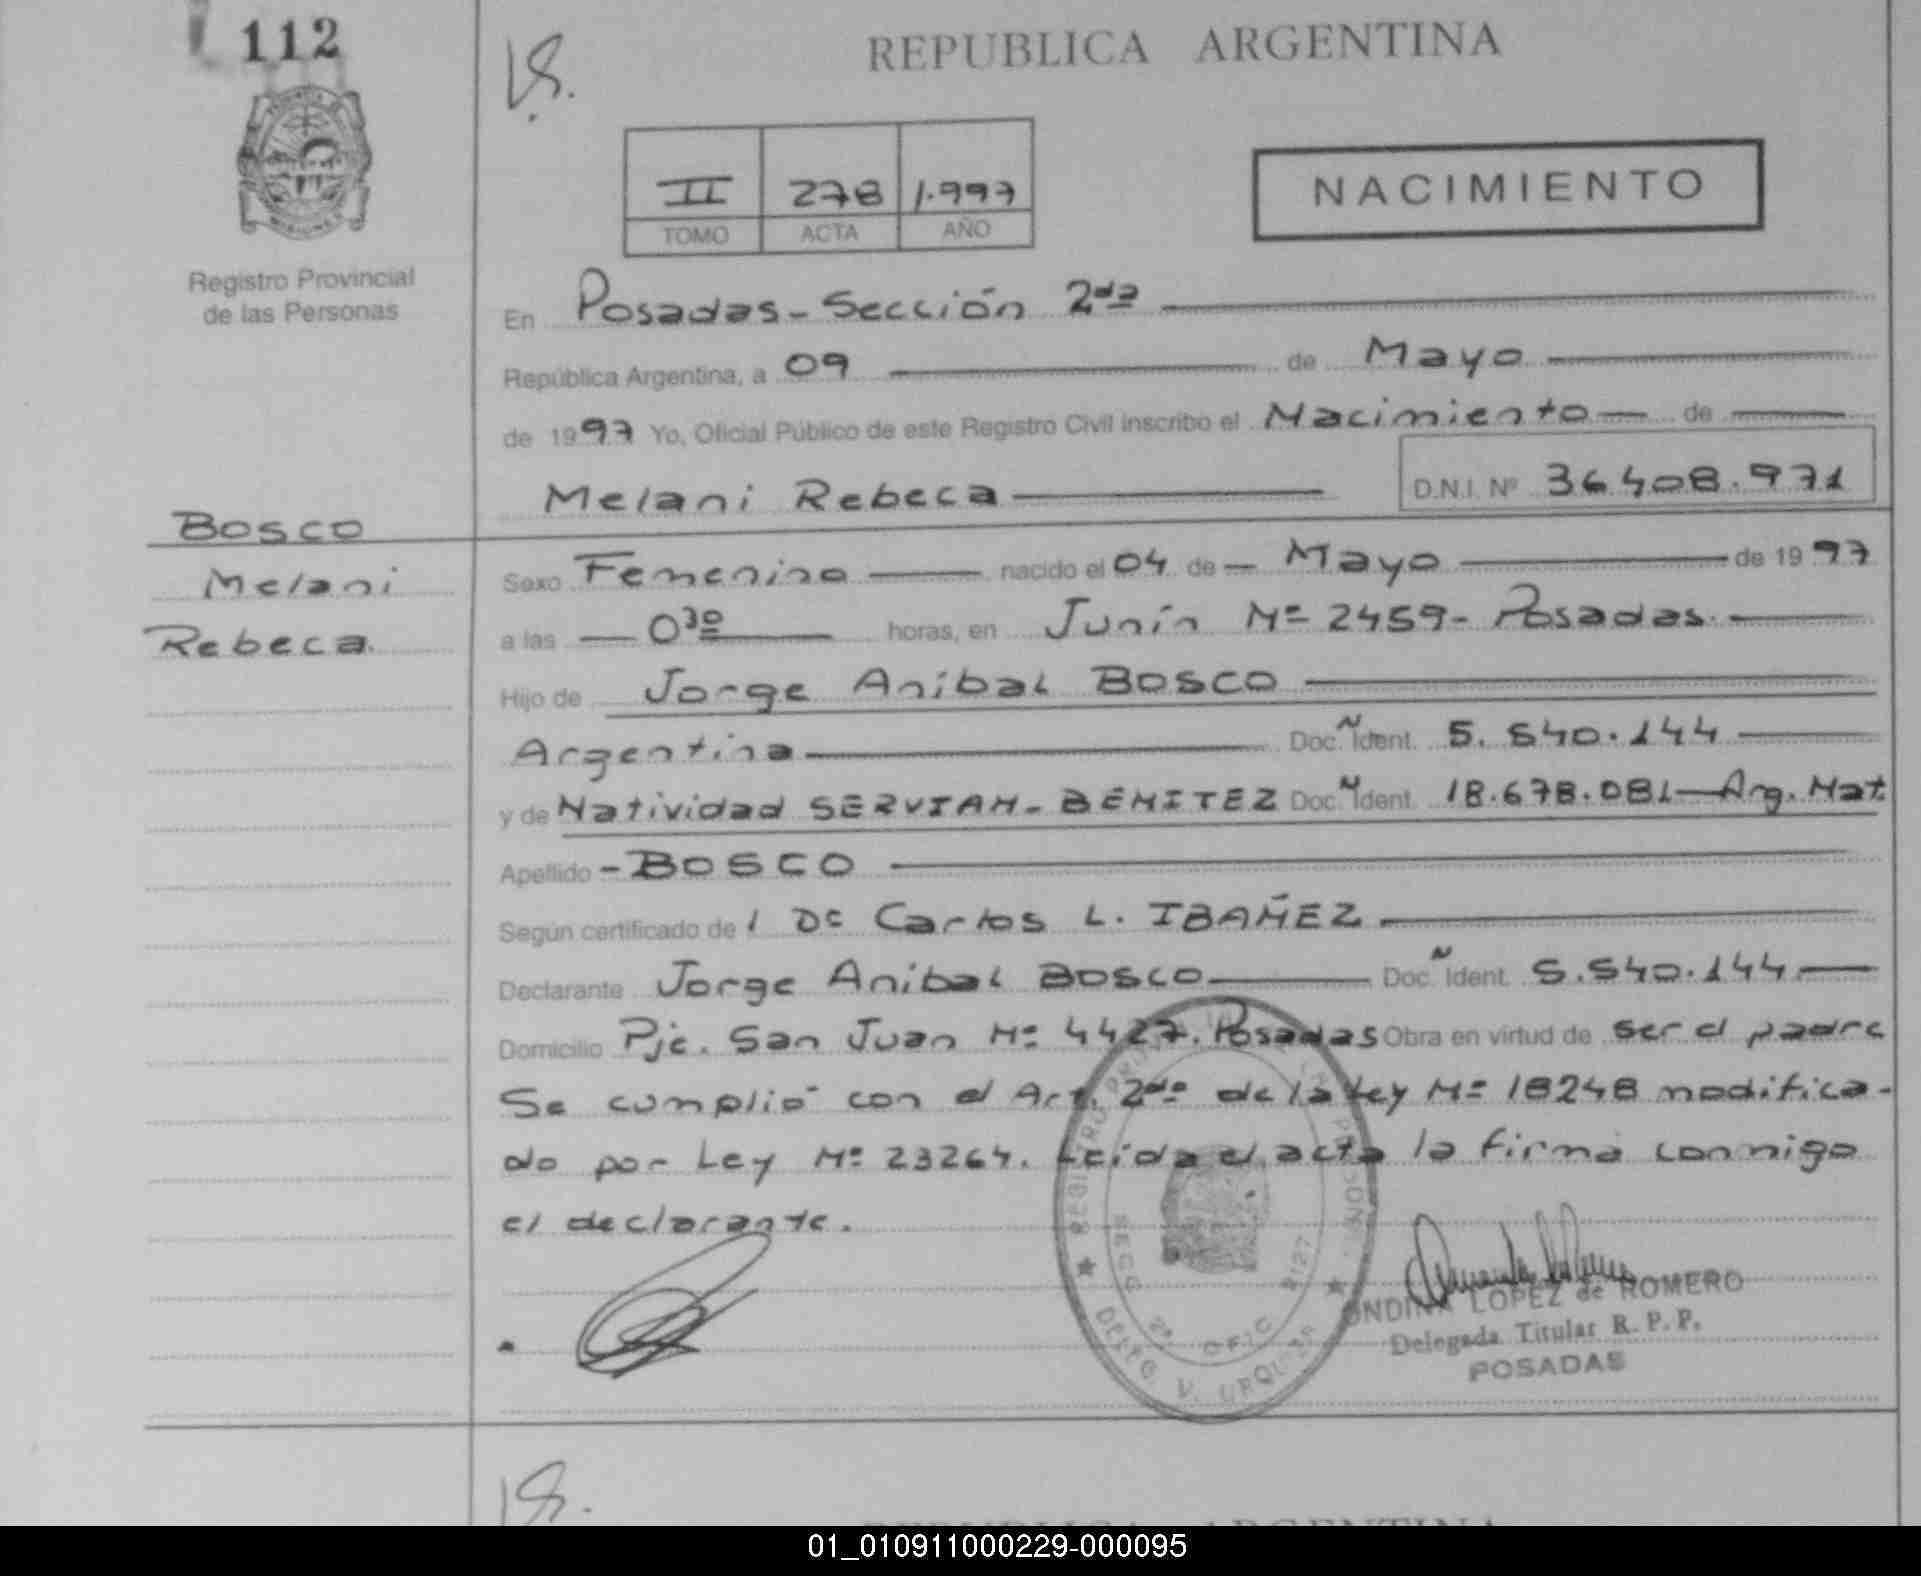 112
REPUBLICA ARGENTINA
II 278 1.997
TOMO ACTA AÑO
NACIMIENTO
Registro Provincial
de las Personas
En Posadas-Sección 2da
República Argentina, a 09 de Mayo
de 1997 Yo, Oficial Público de este Registro Civil inscribo el Nacimiento de
Melani Rebeca D.N.I. Nº 36.408.971
BOSCO
Melani
Rebeca.
Sexo Femenino nacido el 04 de Mayo de 1997
a las 030 horas, en Junín Nº 2459- Posadas.
Hijo de Jorge Anibal BOSCO
Argentina Doc. N Ident. 5.540.144
y de Natividad SERVIAN-BENITEZ Doc. N Ident. 18.678.081-Arg. Nat.
Apellido -BOSCO
Según certificado de l Dr Carlos L. IBAÑEZ
Declarante Jorge Anibal BOSCO Doc. N Ident. 5.540.144
Domicilio Pje. San Juan Nº 4427. Posadas Obra en virtud de ser el padre
Se cumplió con el Art. 2do de la Ley Nº 18248 modifica-
do por Ley Nº 23264. Leida el acta la firma conmigo
el declarante.
ONDINA LOPEZ de ROMERO
Delegada Titular R. P. P.
POSADAS
REGISTRO
SECC 2ª OFIC 2127
DPTO V. URQUIZA
REPUBLICA ARGENTINA
01_010911000229-000095